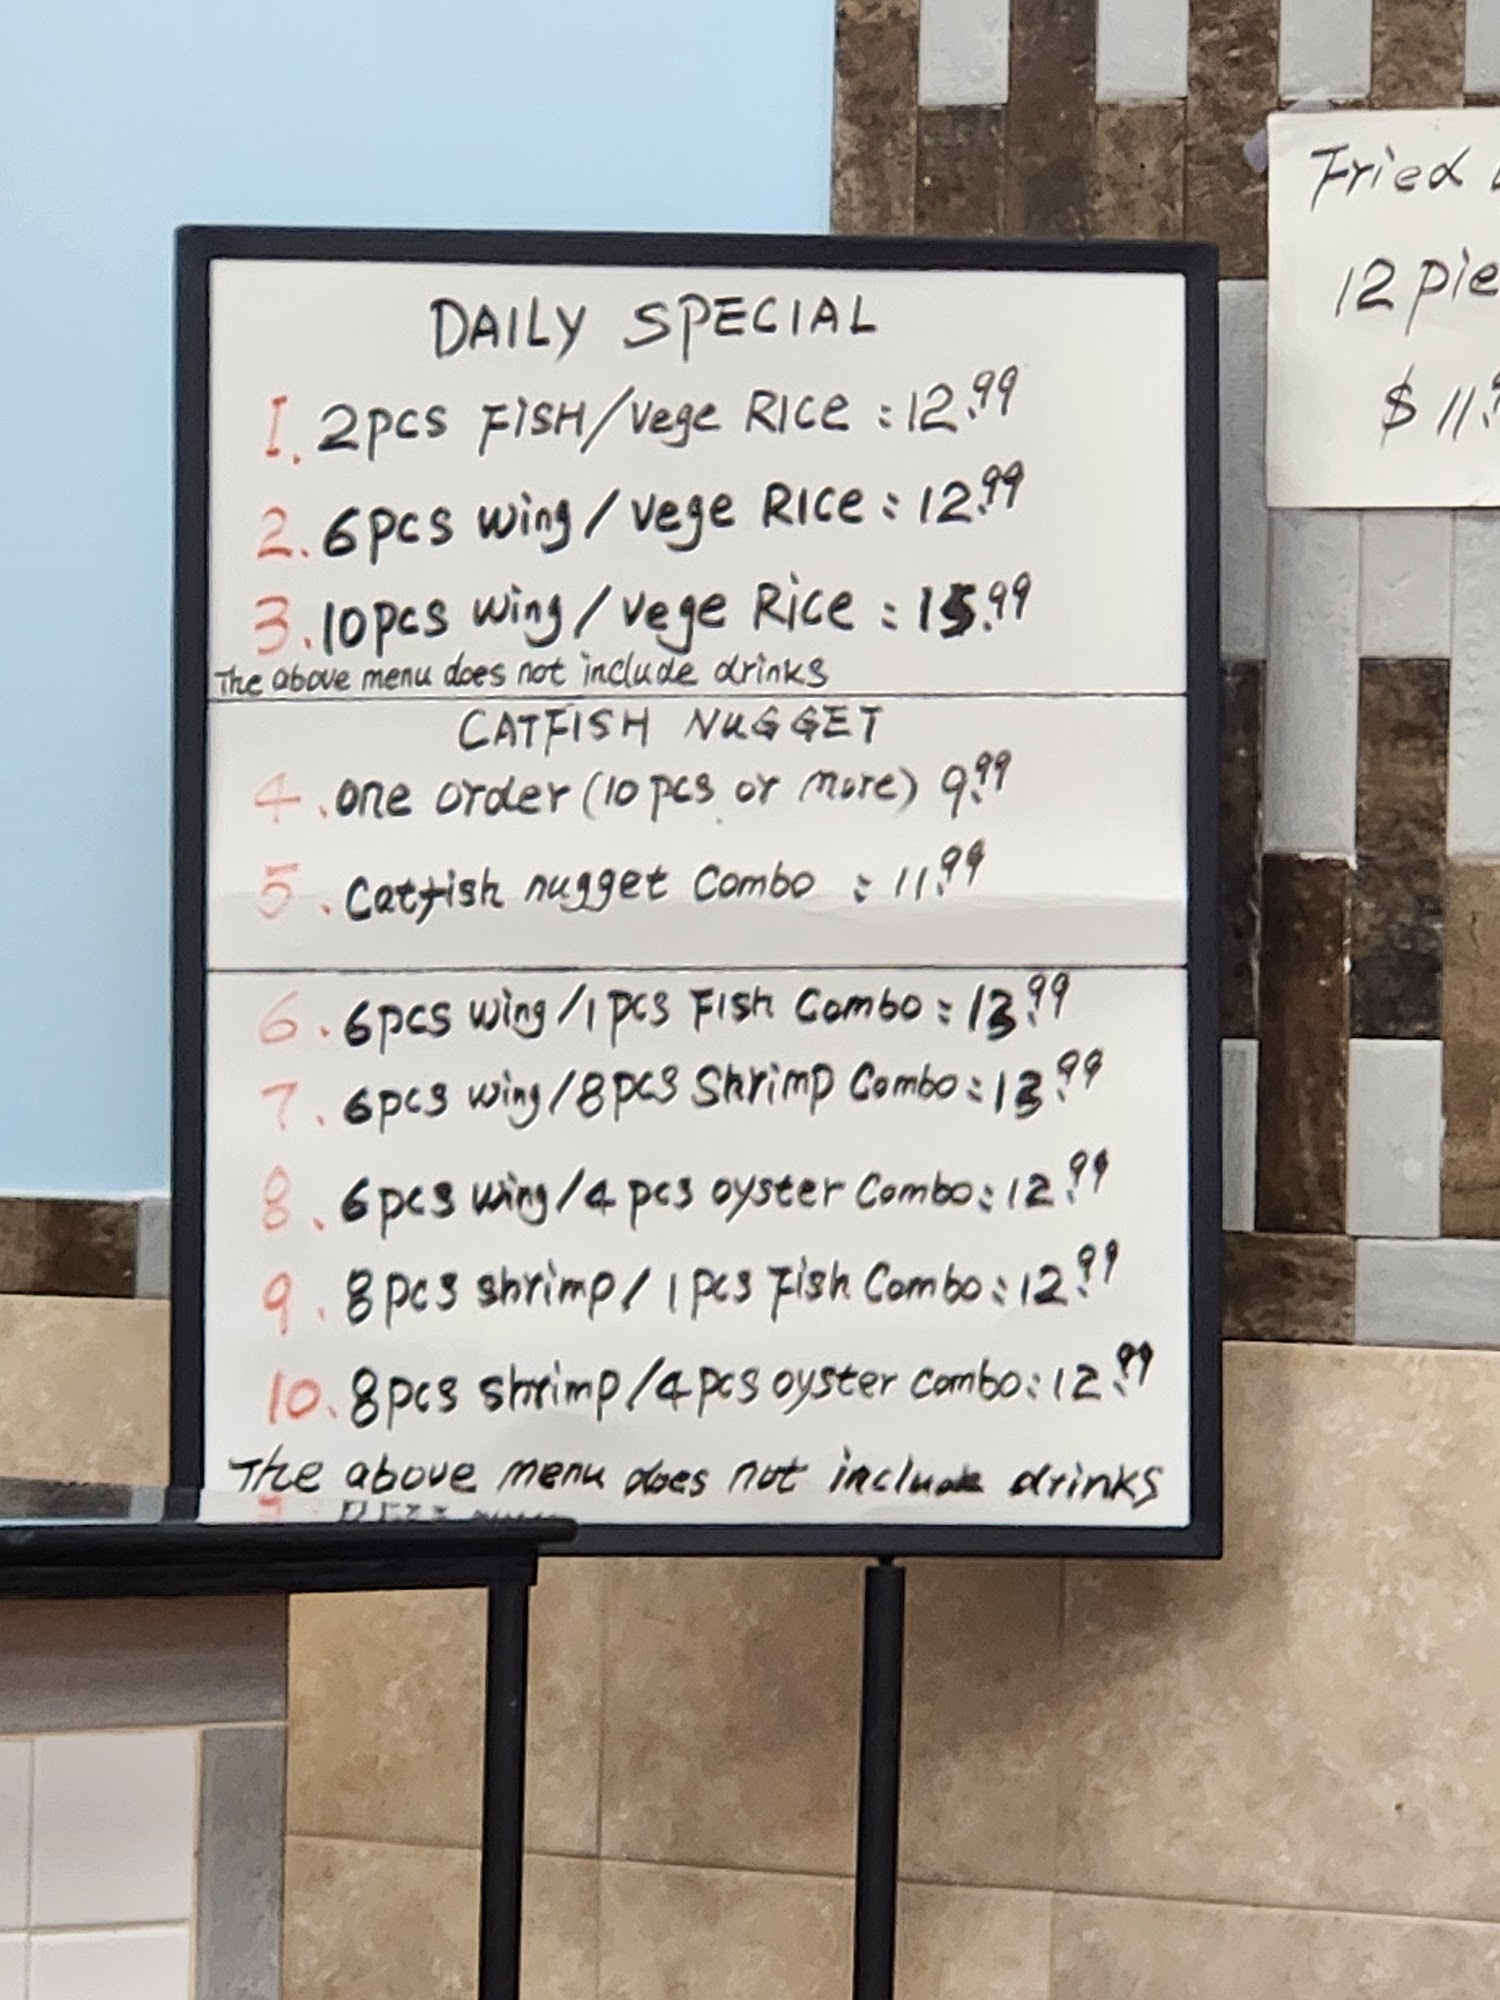 DAILY SPECIAL
1. 2pcs FISH/Vege RICE : 12.99
2. 6pcs wing/vege RICE : 12.99
3. 10pcs wing/vege Rice : 15.99
The above menu does not include drinks
CATFISH NUGGET
4. one order (10 pcs or more) 9.99
5. Catfish nugget Combo : 11.99
6. 6pcs wing/1 pcs Fish Combo : 13.99
7. 6pcs wing/8pcs Shrimp Combo : 13.99
8. 6pcs wing/4 pcs oyster Combo : 12.99
9. 8pcs shrimp/1pcs Fish Combo : 12.99
10. 8pcs shrimp/4pcs oyster combo : 12.99
The above menu does not include drinks
Fried
12 pie
$ 11.